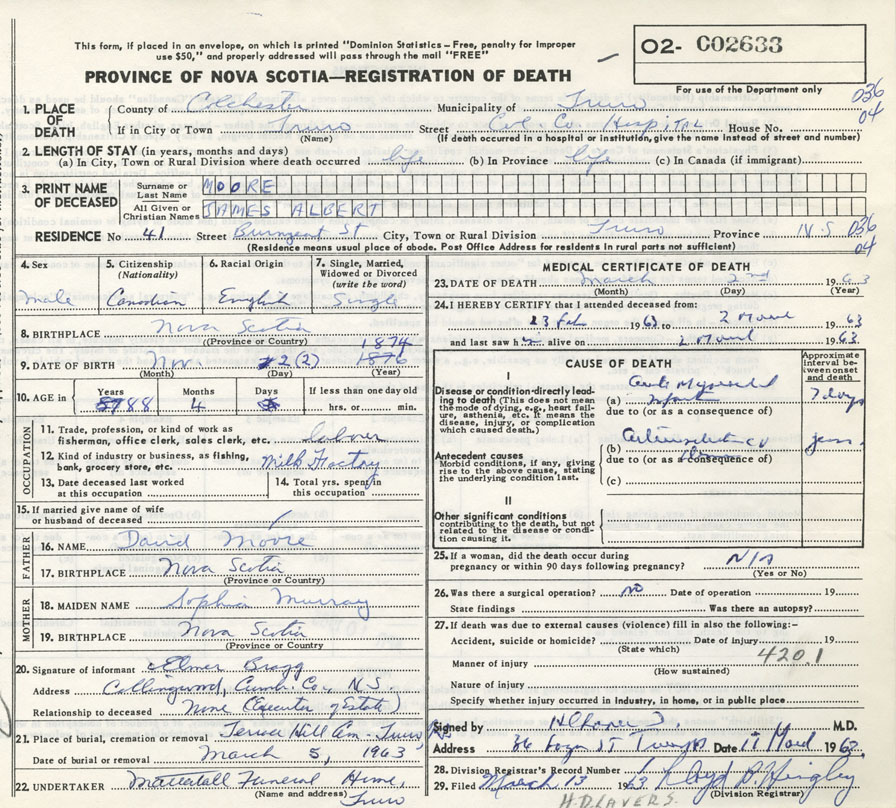 This form, if placed in an envelope, on which is printed "Dominion Statistics - Free, penalty for improper
use $50," and properly addressed will pass through the mail "FREE"
O2- C02633
PROVINCE OF NOVA SCOTIA—REGISTRATION OF DEATH
For use of the Department only
036
04
1. PLACE OF DEATH
County of Colchester Municipality of Truro
If in City or Town Truro Street Col Co Hospital House No.
(Name) (If death occurred in a hospital or institution, give name instead of street and number)
2. LENGTH OF STAY (in years, months and days)
(a) In City, Town or Rural Division where death occurred life (b) In Province life (c) In Canada (if immigrant)
3. PRINT NAME OF DECEASED
Surname or Last Name MOORE
All Given or Christian Names JAMES ALBERT
RESIDENCE No 41 Street City, Town or Rural Division Truro Province N.S 036
04
(Residence means usual place of abode. Post Office Address for residents in rural parts not sufficient)
4. Sex 5. Citizenship (Nationality) 6. Racial Origin 7. Single, Married, Widowed or Divorced (write the word)
male Canadian English Single
8. BIRTHPLACE Nova Scotia
(Province or Country) 1874
9. DATE OF BIRTH Nov. 2 (2) 1876
(Month) (Day) (Year)
10. AGE in Years Months Days If less than one day old
88 4 hrs. or min.
OCCUPATION
11. Trade, profession, or kind of work as fisherman, office clerk, sales clerk, etc. labour
12. Kind of industry or business, as fishing, bank, grocery store, etc. Milk Factory
13. Date deceased last worked at this occupation 14. Total yrs. spent in this occupation
15. If married give name of wife or husband of deceased
FATHER
16. NAME David Moore
17. BIRTHPLACE Nova Scotia
(Province or Country)
MOTHER
18. MAIDEN NAME Sophia Murray
19. BIRTHPLACE Nova Scotia
(Province or Country)
20. Signature of informant Elmer Bragg
Address Collingwood, Cumb. Co., N.S.
Relationship to deceased None (Executor of Estate)
21. Place of burial, cremation or removal Terrace Hill Cem - Truro N.S.
Date of burial or removal March 5, 1963
22. UNDERTAKER Mattatall Funeral Home,
(Name and address) Truro
MEDICAL CERTIFICATE OF DEATH
23. DATE OF DEATH March 2nd 1963
(Month) (Day) (Year)
24. I HEREBY CERTIFY that I attended deceased from:
23 feb 1963 to 2 March 1963
and last saw h alive on 2 March 1963
CAUSE OF DEATH
Approximate interval between onset and death
I
Disease or condition directly leading to death (This does not mean the mode of dying, e.g., heart failure, asthenia, etc. It means the disease, injury, or complication which caused death.)
(a) Acute Myocardial Infarct 7 days
due to (or as a consequence of)
Antecedent causes
Morbid conditions, if any, giving rise to the above cause, stating the underlying condition last.
(b) Arteriosclerotic CV years
due to (or as a consequence of)
(c)
II
Other significant conditions
contributing to the death, but not related to the disease or condition causing it.
25. If a woman, did the death occur during
pregnancy or within 90 days following pregnancy? N/A
(Yes or No)
26. Was there a surgical operation? no Date of operation 19
State findings Was there an autopsy?
27. If death was due to external causes (violence) fill in also the following:-
Accident, suicide or homicide? Date of injury 19
(State which) 420.1
Manner of injury
(How sustained)
Nature of injury
Specify whether injury occurred in industry, in home, or in public place
Signed by M.D.
Address 36 St Truro Date 11 March 1963
28. Division Registrar's Record Number
29. Filed March 13 1963 Lloyd Hingley
(Division Registrar)
H.D. LAVERS.